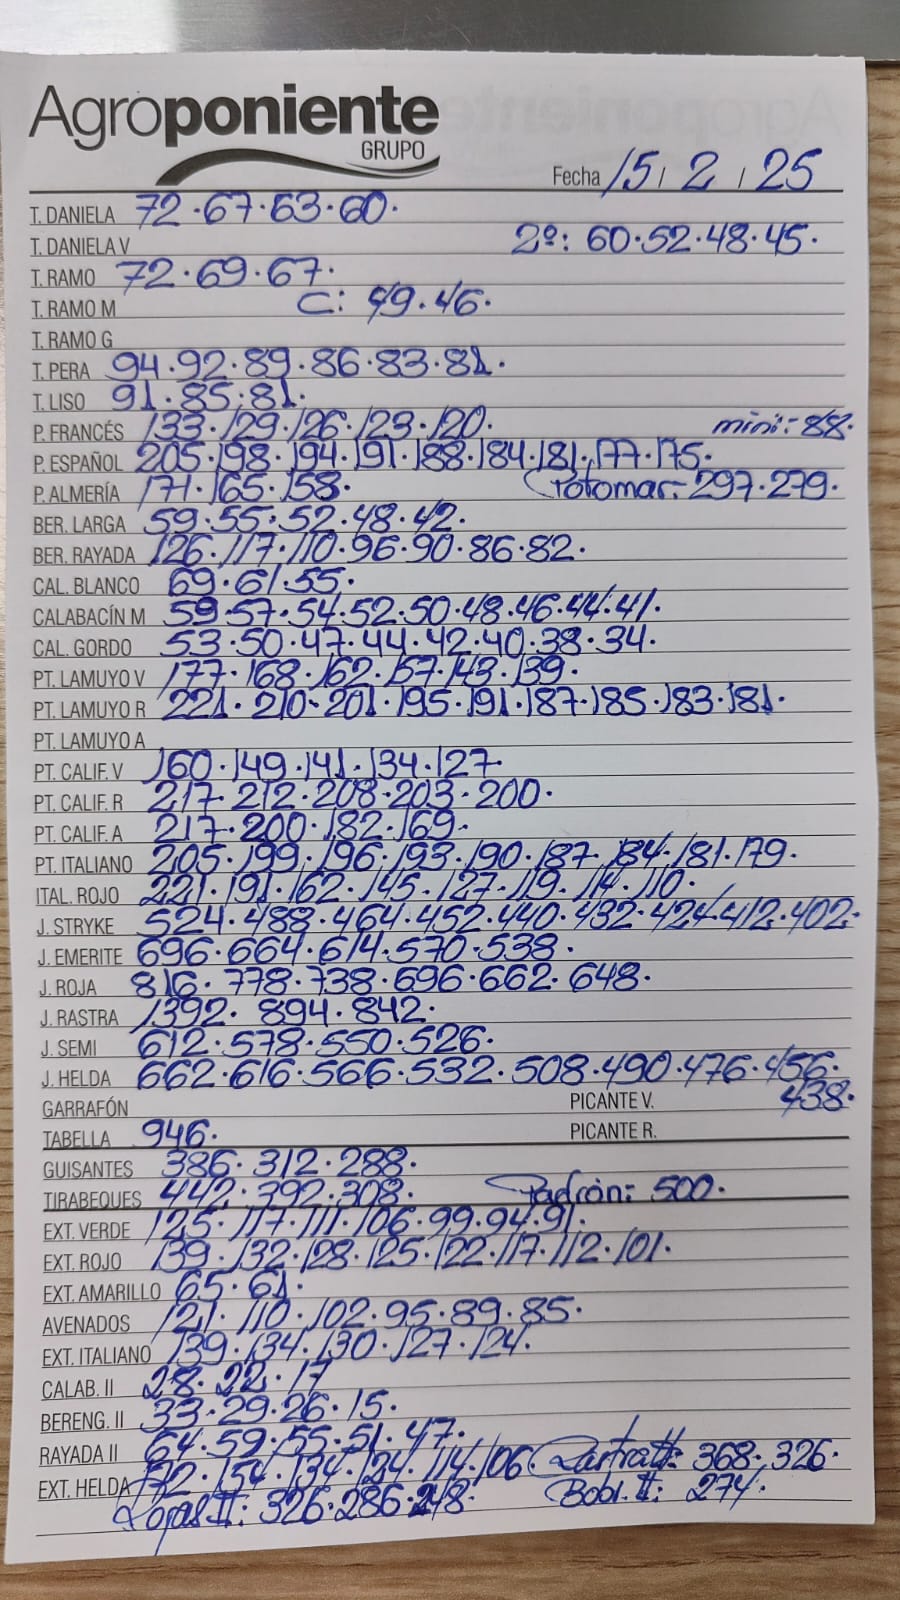 Agroponiente
GRUPO
Fecha 15 / 2 / 25
T. DANIELA 72·67·63·60·
T. DANIELA V 2º: 60·52·48·45·
T. RAMO 72·69·67·
T. RAMO M C: 49·46·
T. RAMO G
T. PERA 94·92·89·86·83·81·
T. LISO 91·85·81·
P. FRANCÉS 133·129·126·123·120· mini:-88·
P. ESPAÑOL 205·198·194·191·188·184·181·177·175·
P. ALMERÍA 171·165·158· Potomar:-297·279·
BER. LARGA 59·55·52·48·42·
BER. RAYADA 126·117·110·96·90·86·82·
CAL. BLANCO 69·61·55·
CALABACÍN M 59·57·54·52·50·48·46·44·41·
CAL. GORDO 53·50·47·44·42·40·38·34·
PT. LAMUYO V 177·168·162·157·143·139·
PT. LAMUYO R 221·210·201·195·191·187·185·183·181·
PT. LAMUYO A
PT. CALIF. V 160·149·141·134·127·
PT. CALIF. R 217·212·208·203·200·
PT. CALIF. A 217·200·182·169·
PT. ITALIANO 205·199·196·193·190·187·184·181·179·
ITAL. ROJO 221·191·162·145·127·119·114·110·
J. STRYKE 524·488·464·452·440·432·424·412·402·
J. EMERITE 696·664·614·570·538·
J. ROJA 816·778·738·696·662·648·
J. RASTRA 1392·894·842·
J. SEMI 612·578·550·526·
J. HELDA 662·616·566·532·508·490·476·456·
GARRAFÓN PICANTE V. 438·
TABELLA 946· PICANTE R.
GUISANTES 386·312·288·
TIRABEQUES 442·392·308· Padrón: 500·
EXT. VERDE 125·117·111·106·99·94·91·
EXT. ROJO 139·132·128·125·122·117·112·101·
EXT. AMARILLO 65·61·
AVENADOS 121·110·102·95·89·85·
EXT. ITALIANO 139·134·130·127·124·
CALAB. II 28·22·17
BERENG. II 33·29·26·15·
RAYADA II 64·59·55·51·47·
EXT. HELDA 172·154·134·124·114·106 Rastra II: 368·326·
Rojas II: 326·286·248· Bobi. II: 274·